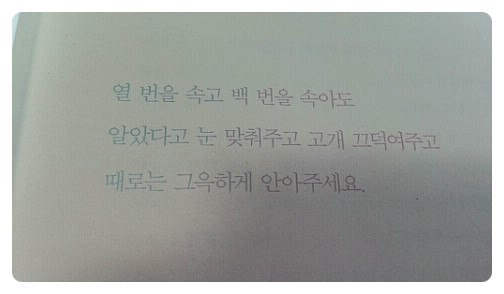 열 번을 속고 백 번을 속아도
알았다고 눈 맞춰주고 고개 끄덕여주고
때로는 그윽하게 안아주세요.